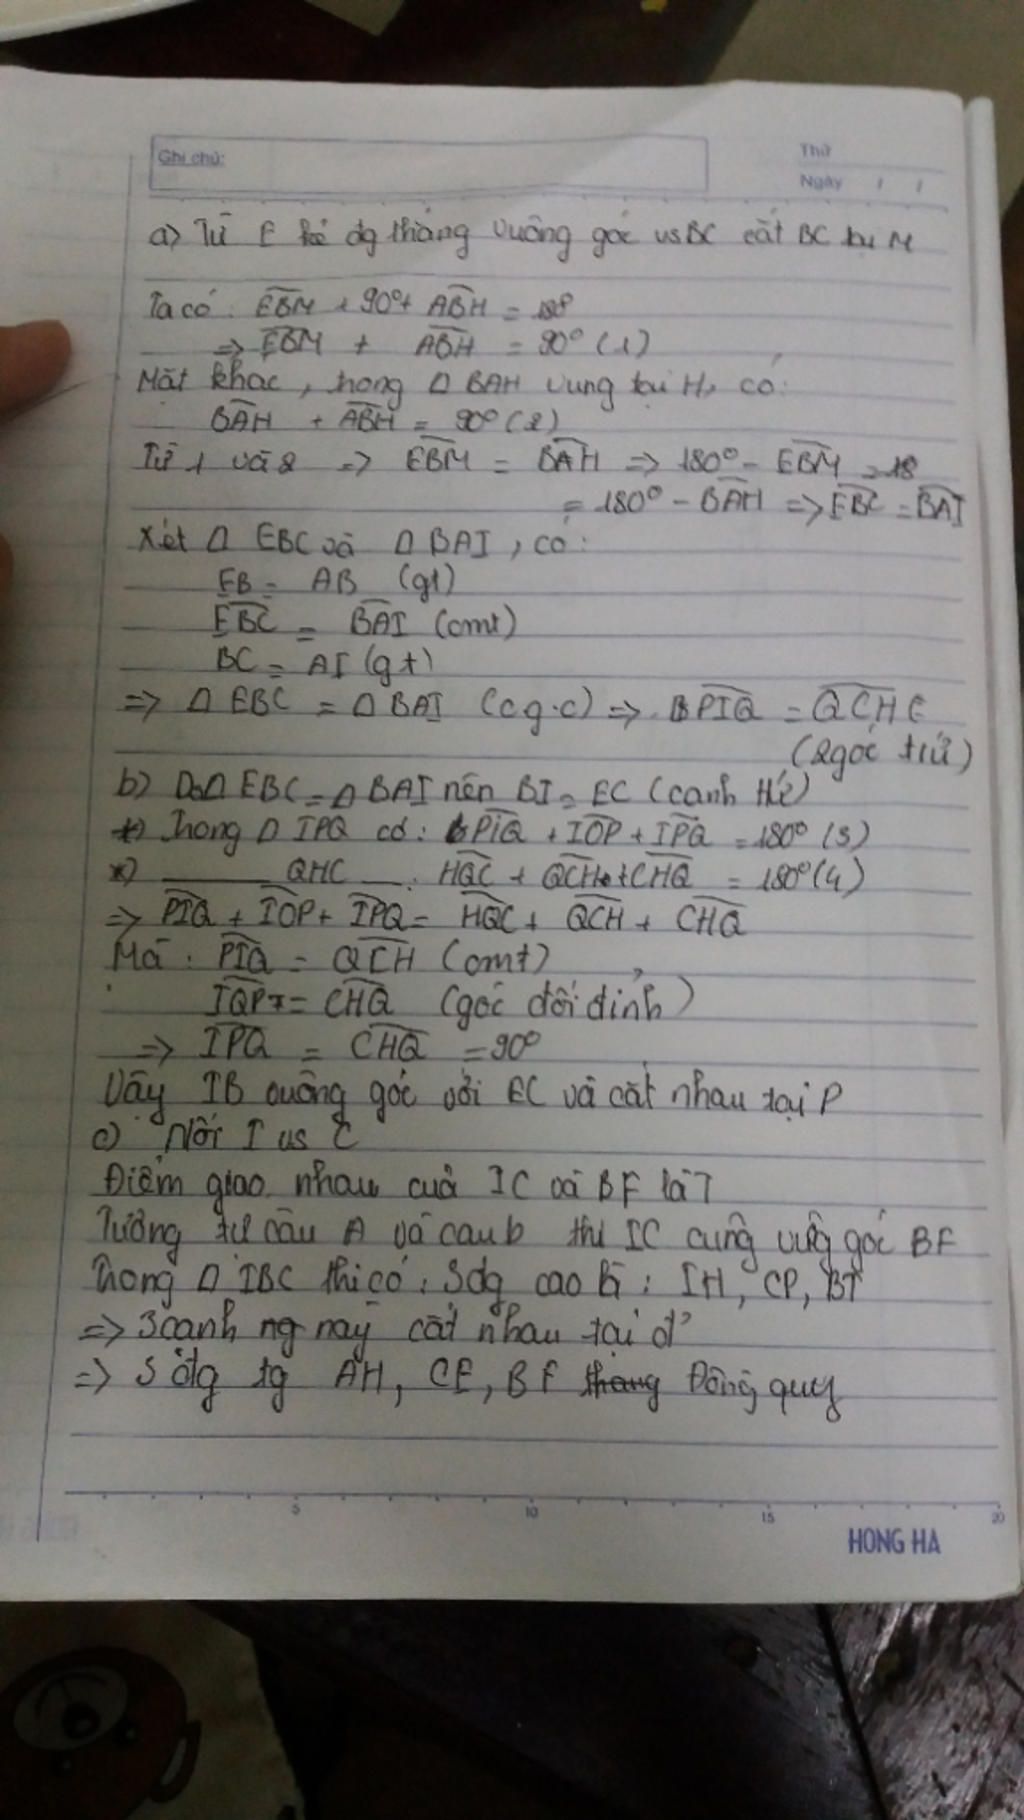 Ghi chú:
Thứ
Ngày / /
a) Từ E kẻ đg thẳng vuông góc vs BC cắt BC tại M
Ta có: EBM + 90° + ABH = 180
=> EBM + ABH = 90° (1)
Mặt khác, trong Δ BAH vung tại H, có:
BAH + ABH = 90° (2)
Từ 1 và 2 => EBM = BAH => 180° - EBM = 18
= 180° - BAH => EBC = BAI
Xét Δ EBC và Δ BAI, có:
EB = AB (gt)
EBC = BAI (cmt)
BC = AI (gt)
=> Δ EBC = Δ BAI (c.g.c) => PIQ = QCH
(2 góc tứ)
b) Do Δ EBC = Δ BAI nên BI = EC (cạnh tứ)
*) Trong Δ IPQ có: PIQ + IQP + IPQ = 180° (3)
*) QHC : HQC + QCH + CHQ = 180° (4)
=> PIQ + IQP + IPQ = HQC + QCH + CHQ
Mà: PIQ = QCH (cmt)
IQP = CHQ (góc đối đỉnh)
=> IPQ = CHQ = 90°
Vậy IB vuông góc với EC và cắt nhau tại P
c) Nối I vs C
Điểm giao nhau của IC và BF là T
Tương tự câu A và câu b thì IC cũng vuông góc BF
Trong Δ IBC thì có: 3 đg cao là: IH, CP, BT
=> 3 cạnh ng này cắt nhau tại 1 đ'
=> 3 đg tg AH, CE, BF Đồng quy
5 10 15 20
HONG HA